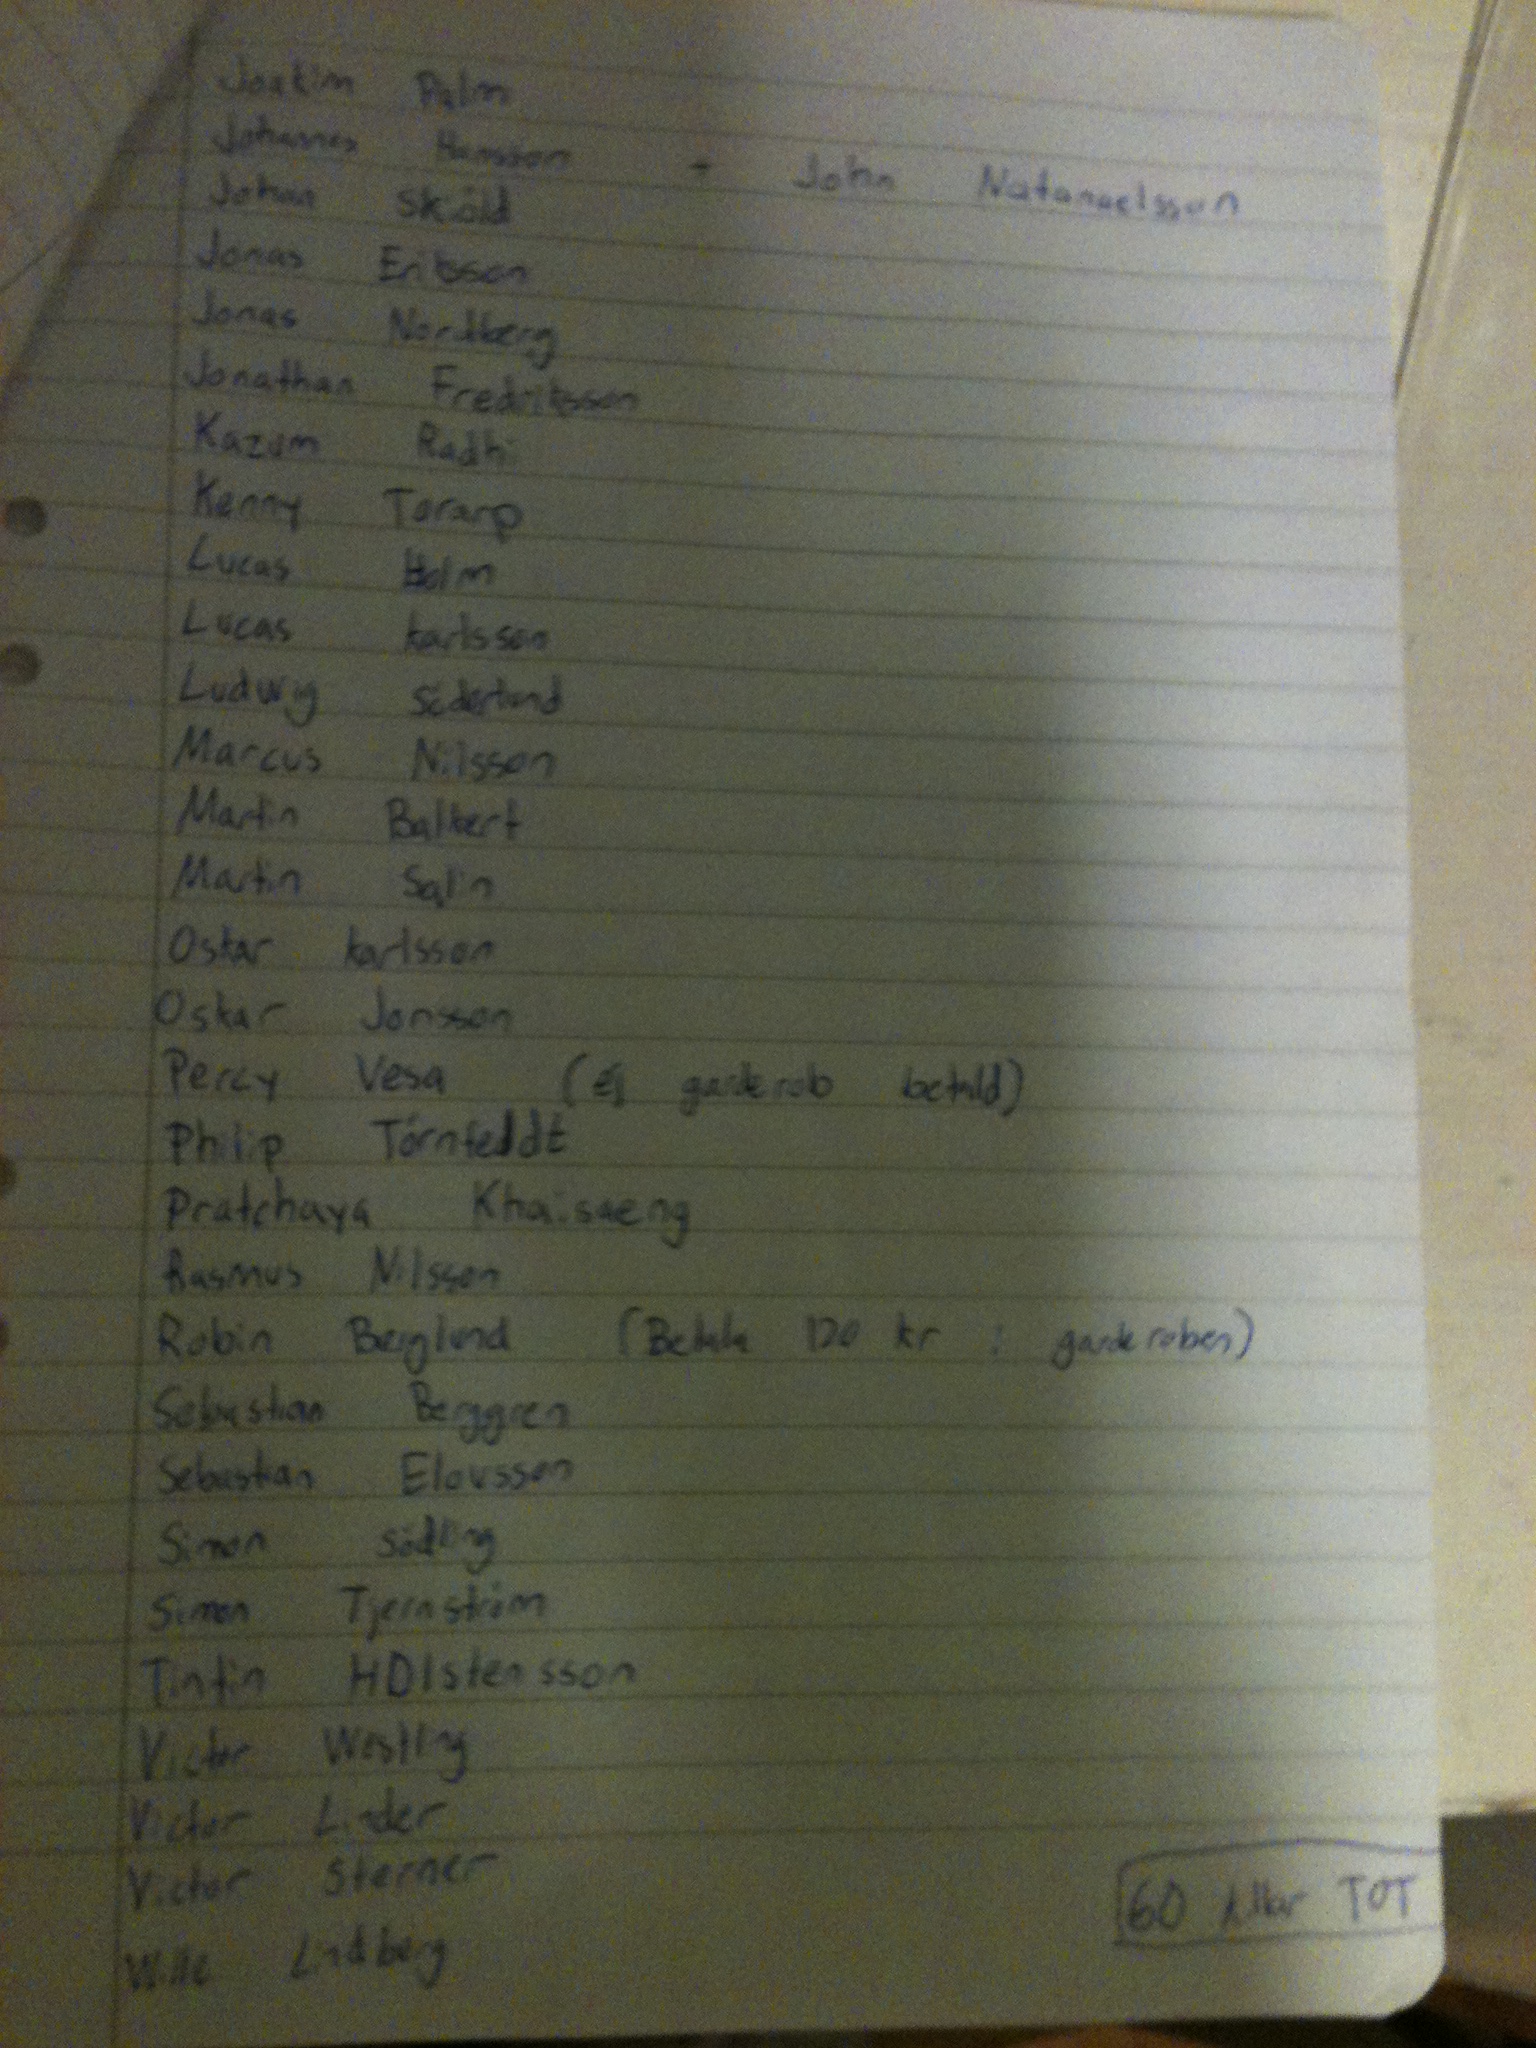 Joakim Palm
Johannes Hansson - John Natanaelsson
Johan Sköld
Jonas Eriksson
Jonas Nordberg
Jonathan Fredriksson
Kazum Radhi
Kenny Torarp
Lucas Holm
Lucas Karlsson
Ludwig Söderlund
Marcus Nilsson
Martin Balbert
Martin Salin
Oskar Karlsson
Oskar Jonsson
Percy Vesa (Ej garderob betald)
Philip Törnfeldt
Pratchaya Khaisaeng
Rasmus Nilsson
Robin Berglund (Betala 120 kr i garderoben)
Sebastian Berggren
Sebastian Elovsson
Simon Södling
Simon Tjernström
Tintin HOlstensson
Victor Westling
Victor Linder
Victor Sterner
60 killar TOT
Wille Lindberg